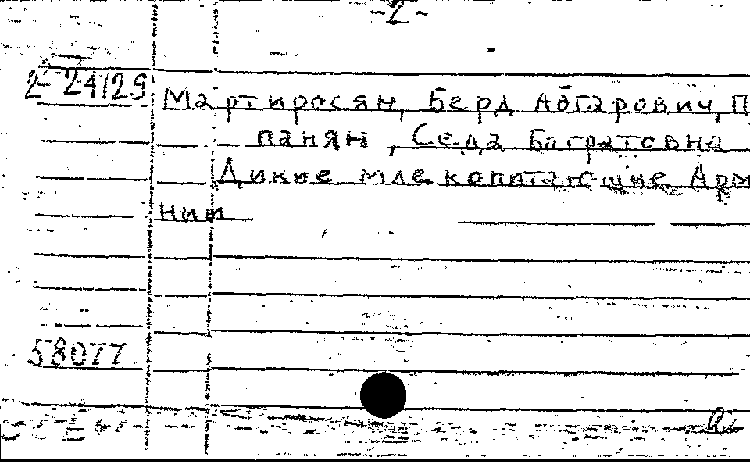 -2-
2-24129 Мартиросян, Берд Абгарович, П
панян, Седа Багратовна
Дикие млекопитающие Арм
нии
58077